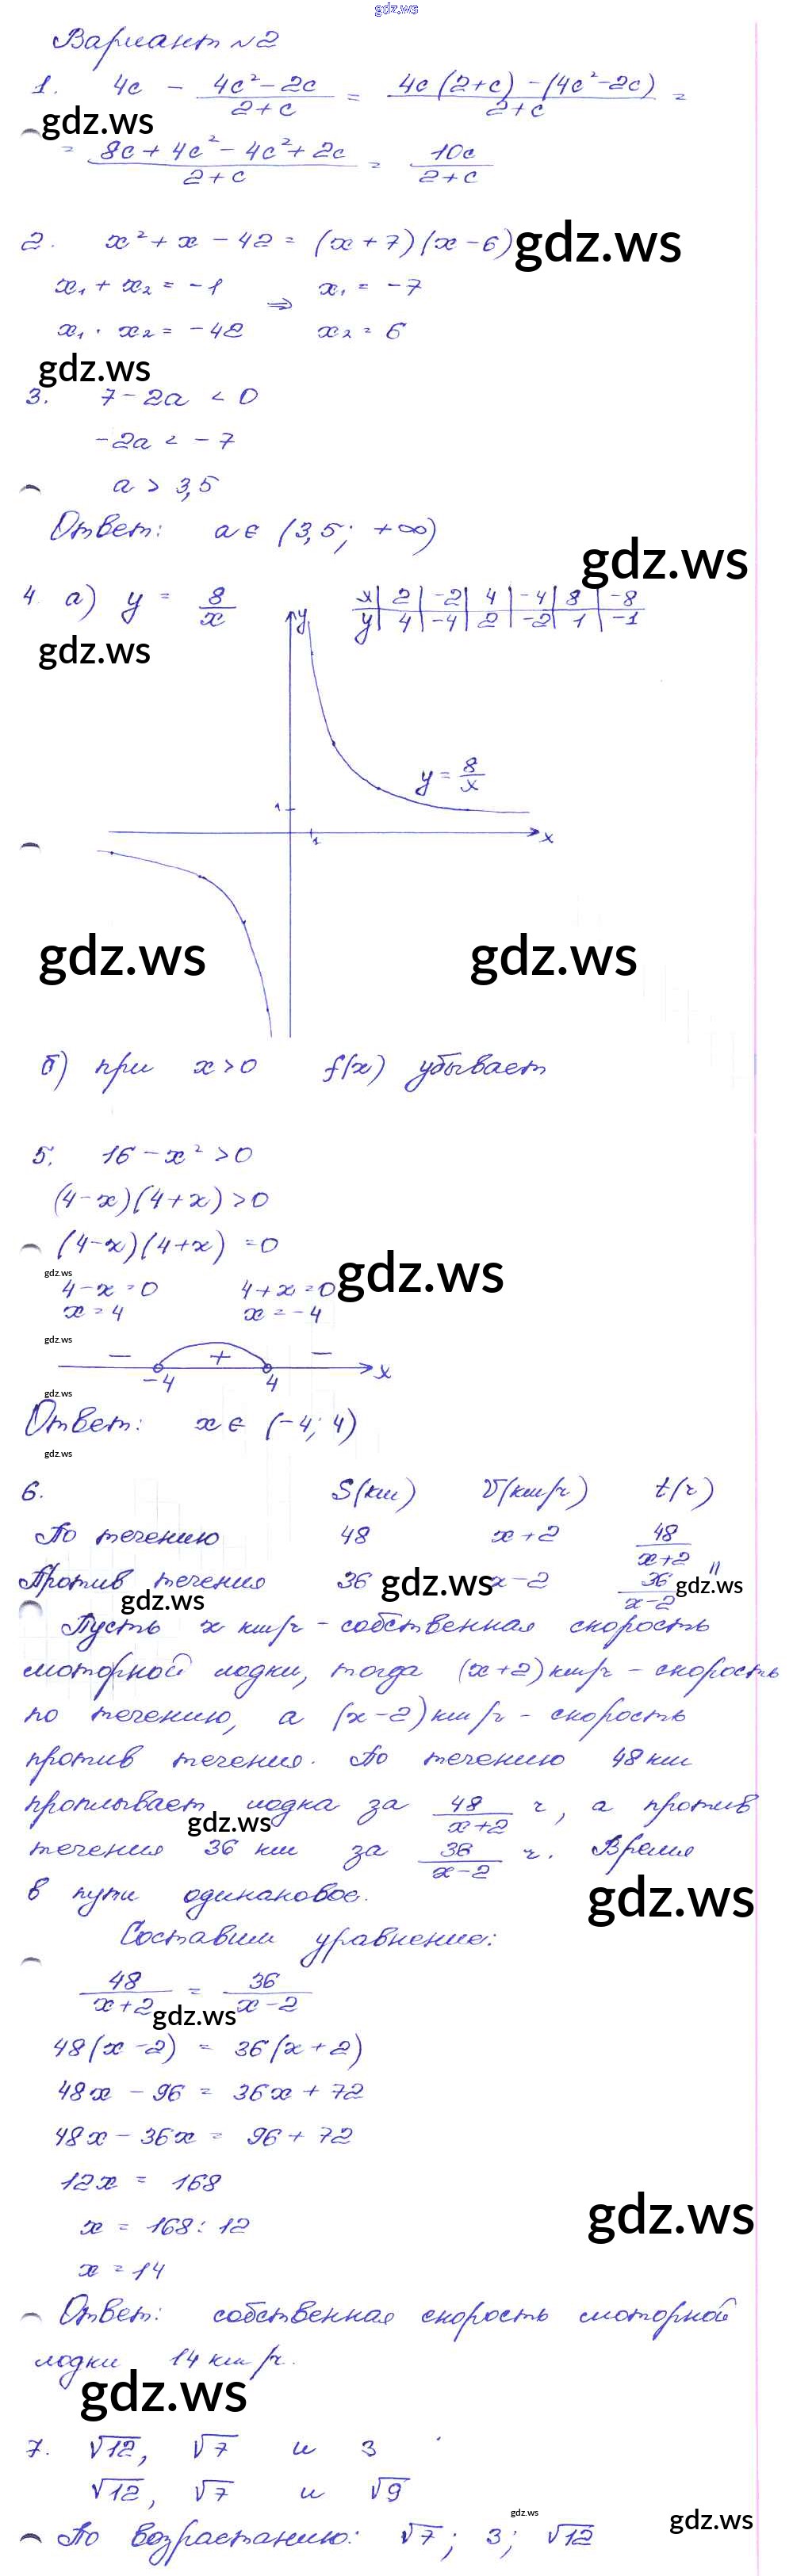 gdz.ws
Вариант №2
1. 4c - (4c² - 2c)/(2+c) = (4c(2+c) - (4c² - 2c))/(2+c) =
gdz.ws
= (8c + 4c² - 4c² + 2c)/(2+c) = 10c/(2+c)
2. x² + x - 42 = (x+7)(x-6) gdz.ws
x₁ + x₂ = -1 ⇒ x₁ = -7
x₁ · x₂ = -42 x₂ = 6
gdz.ws
3. 7 - 2a < 0
-2a < -7
a > 3,5
Ответ: a ∈ (3,5; +∞)
gdz.ws
4. а) y = 8/x
x | 2 | -2 | 4 | -4 | 8 | -8
y | 4 | -4 | 2 | -2 | 1 | -1
gdz.ws
y
y = 8/x
1
1
x
gdz.ws gdz.ws
б) при x > 0 f(x) убывает
5. 16 - x² > 0
(4-x)(4+x) > 0
(4-x)(4+x) = 0
gdz.ws
gdz.ws
4-x = 0 4+x = 0
x = 4 x = -4
gdz.ws
- + - x
-4 4
gdz.ws
Ответ: x ∈ (-4; 4)
gdz.ws
6. S(км) V(км/ч) t(ч)
По течению 48 x+2 48/(x+2)
Против течения 36 gdz.ws x-2 36/(x-2) =
gdz.ws gdz.ws
Пусть x км/ч - собственная скорость
моторной лодки, тогда (x+2) км/ч - скорость
по течению, а (x-2) км/ч - скорость
против течения. По течению 48 км
проплывает лодка за 48/(x+2) ч, а против
gdz.ws
течения 36 км за 36/(x-2) ч. Время
в пути одинаковое.
gdz.ws
Составим уравнение:
48/(x+2) = 36/(x-2)
gdz.ws
48(x-2) = 36(x+2)
48x - 96 = 36x + 72
48x - 36x = 96 + 72
12x = 168
x = 168 : 12
gdz.ws
x = 14
Ответ: собственная скорость моторной
лодки 14 км/ч.
gdz.ws
7. √12, √7 и 3
√12, √7 и √9
gdz.ws
gdz.ws
По возрастанию: √7; 3; √12